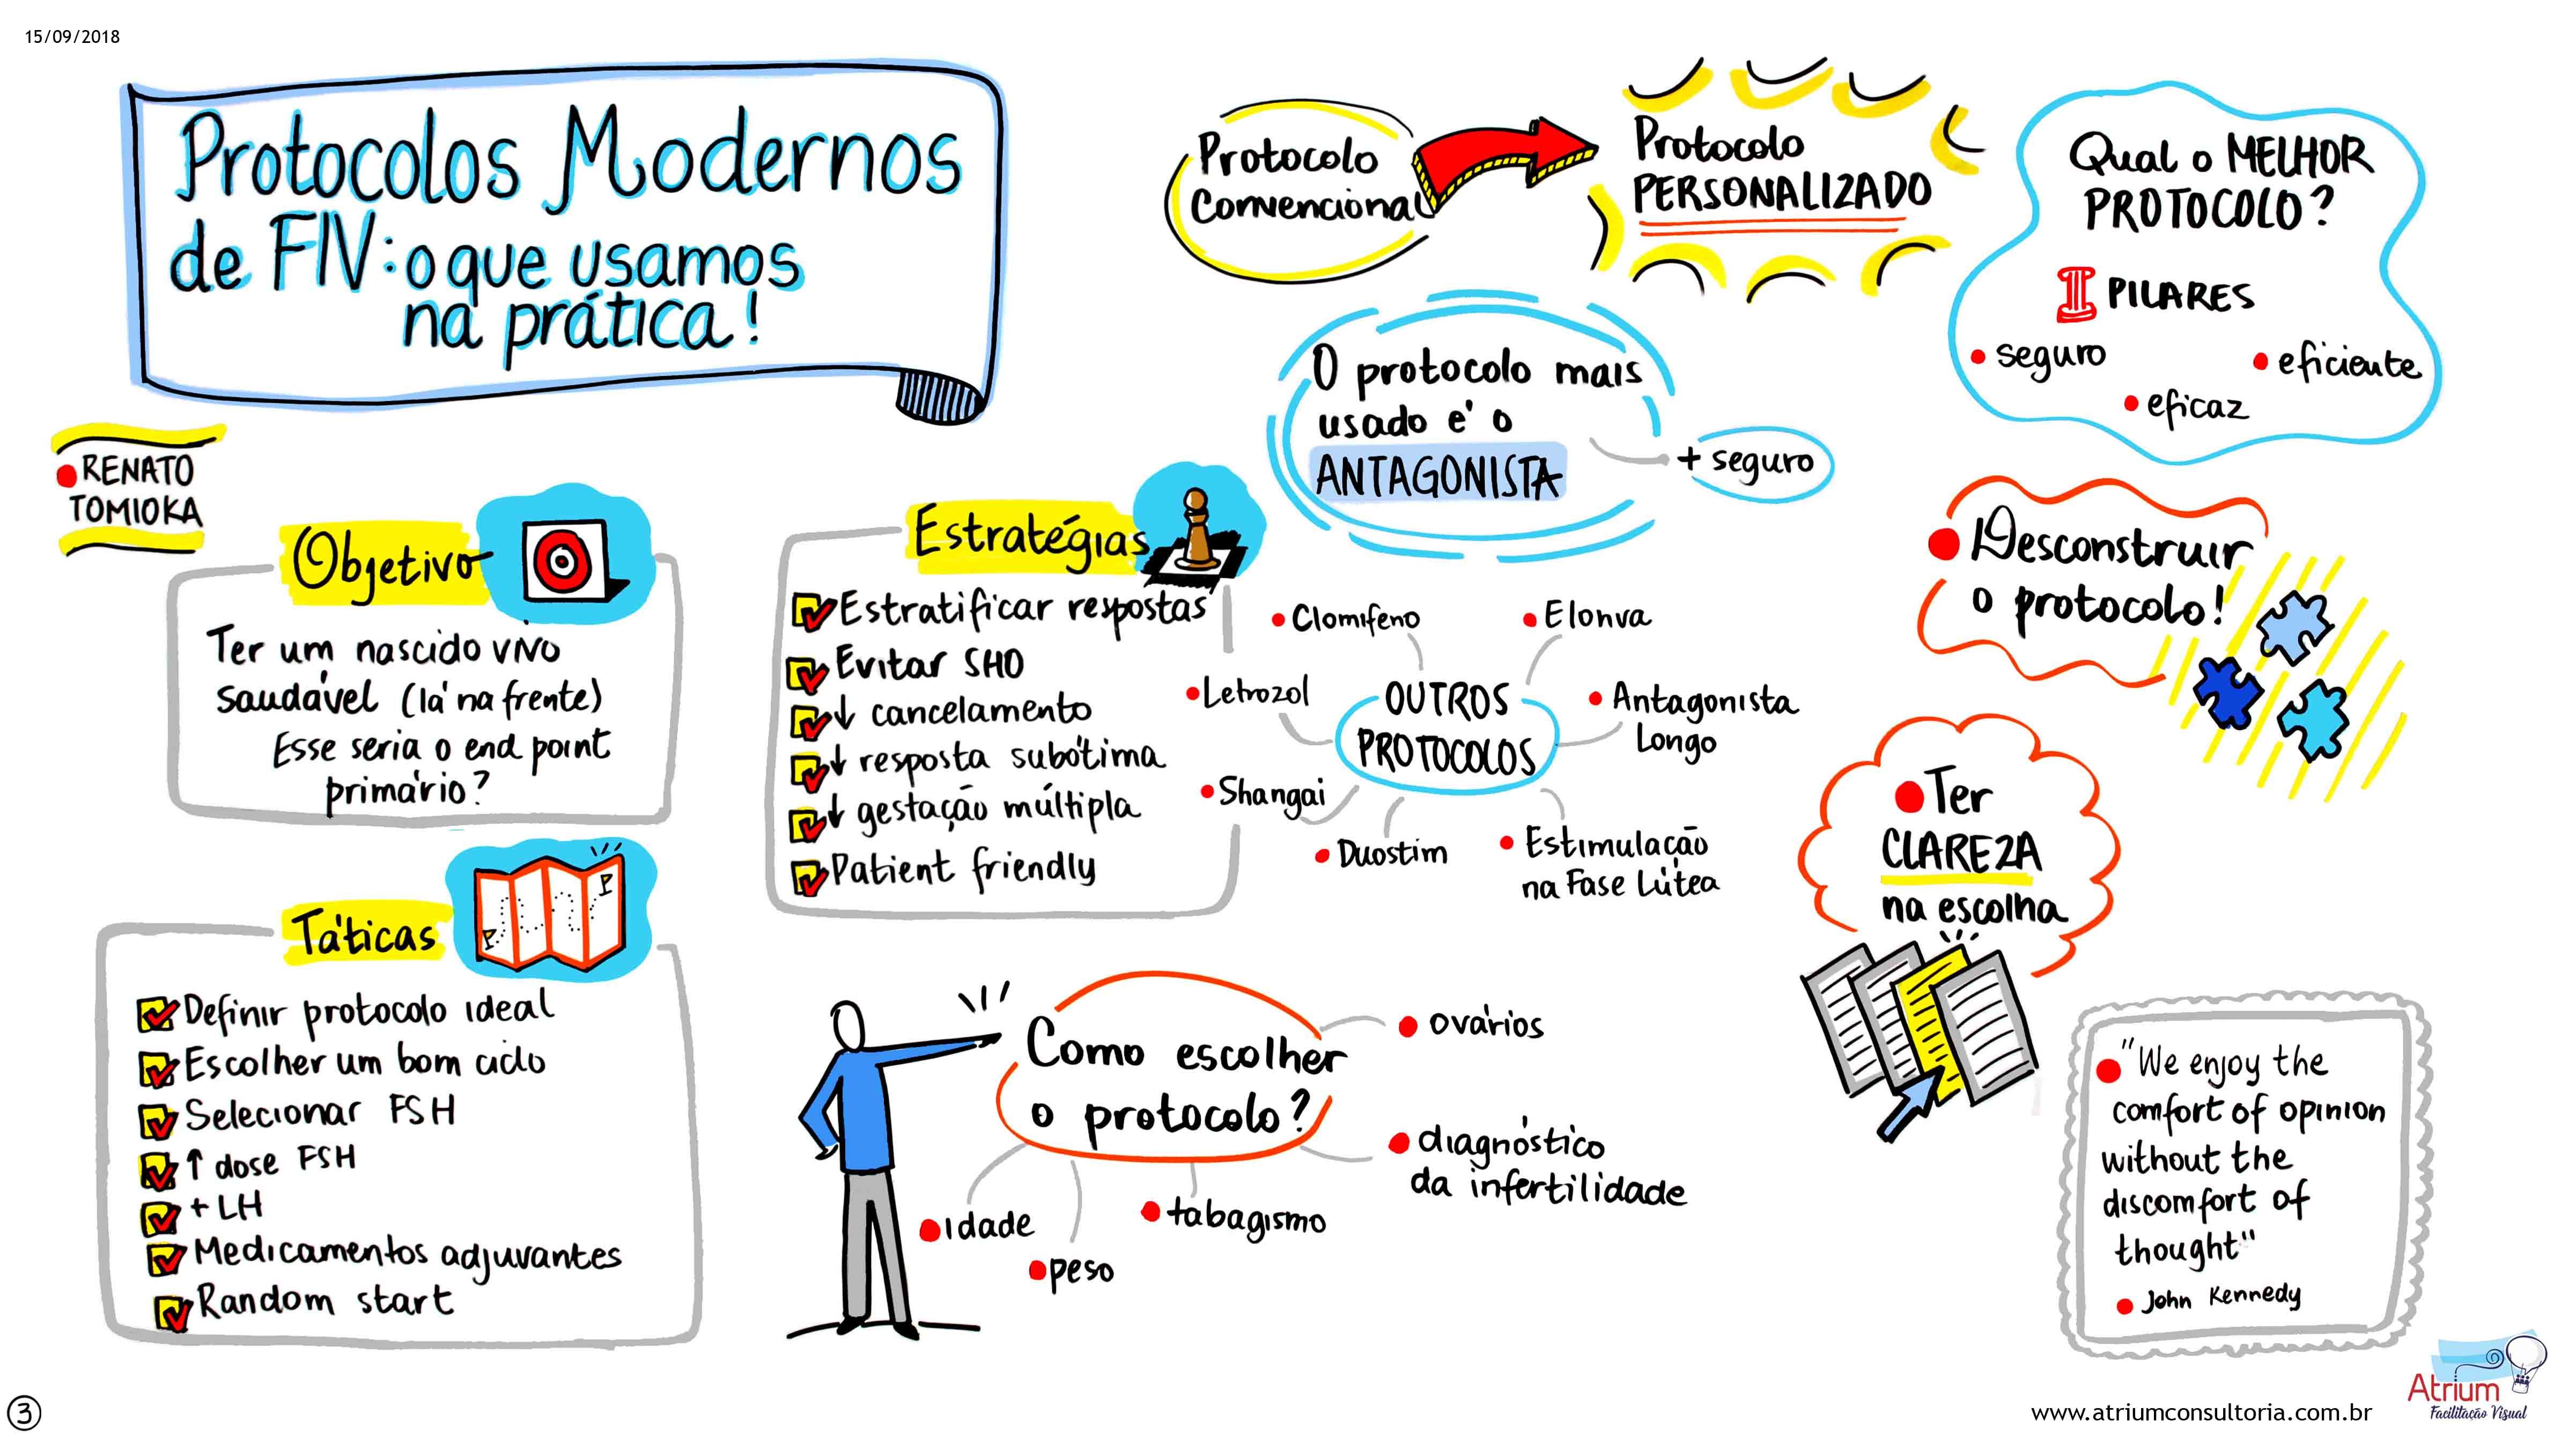 15/09/2018
Protocolos Modernos
de FIV: o que usamos
na prática!
RENATO
TOMIOKA
Objetivo
Ter um nascido vivo
saudável (lá na frente)
Esse seria o end point
primário?
Táticas
Definir protocolo ideal
Escolher um bom ciclo
Selecionar FSH
↑ dose FSH
+ LH
Medicamentos adjuvantes
Random start
Estratégias
Estratificar respostas
Evitar SHO
↓ cancelamento
↓ resposta subótima
↓ gestação múltipla
Patient friendly
Protocolo
Convencional
Protocolo
PERSONALIZADO
O protocolo mais
usado é o
ANTAGONISTA
+ seguro
OUTROS
PROTOCOLOS
Clomifeno
Elonva
Letrozol
Antagonista
Longo
Shangai
Duostim
Estimulação
na Fase Lútea
Como escolher
o protocolo?
ovários
diagnóstico
da infertilidade
tabagismo
peso
idade
Qual o MELHOR
PROTOCOLO?
PILARES
seguro
eficiente
eficaz
Desconstruir
o protocolo!
Ter
CLAREZA
na escolha
"We enjoy the
comfort of opinion
without the
discomfort of
thought"
John Kennedy
3
www.atriumconsultoria.com.br
Atrium
Facilitação Visual